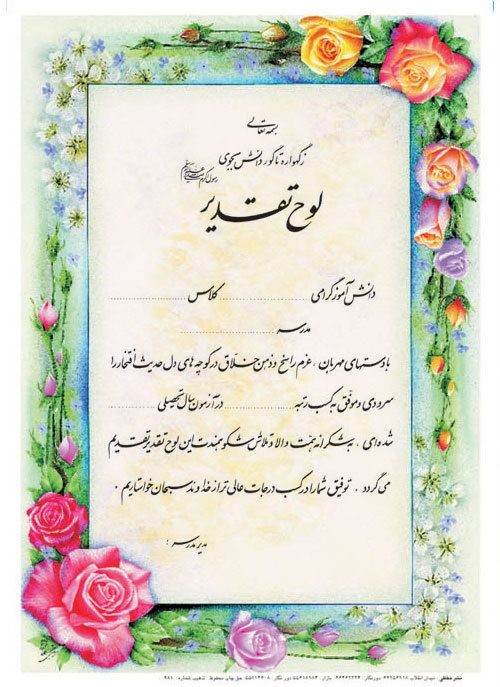 بسمه تعالی
زگهواره تا گور دانش بجوی
رسول اکرم
لوح تقدیر
دانش آموز گرامی .................... کلاس ....................
مدرسه ....................
با دستهای مهربان ، عزم راسخ و ذهن خلاق در کوچه های دل حدیث افتخار را
سرودی و موفق به کسب رتبه .................... در آزمون سال تحصیلی ....................
شده ای ، به شکرانه همت والا و تلاش شکوهمندت این لوح تقدیر تقدیم
می گردد . توفیق شما را در کسب درجات عالی تر از خداوند سبحان خواستاریم .
مدیر مدرسه :